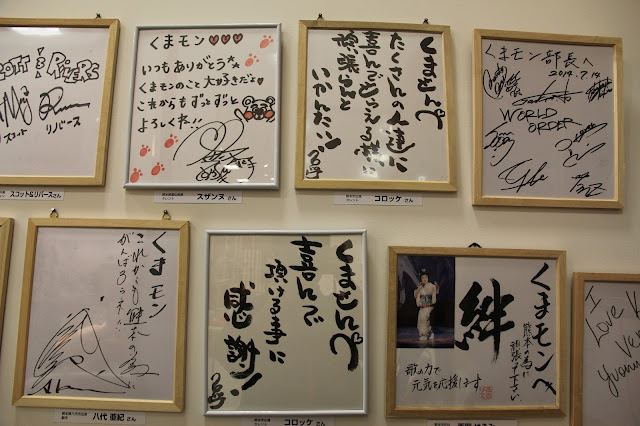 SCOTT & RIVERS
スコット
リバース
スコット&リバースさん
くまモン♥♥♥
いつもありがとうっ
くまモンのこと 大好きだヒ♥
これからもずっとずっと
よろしくね!!
スザンヌ さん
くまもんへ
たくさんの人達に
喜んでもらえる様に
頑張らんと
いかんたい!
コロッケ さん
くまモン部長へ
2014.7.14
WORLD
ORDER
くまモン
これからも熊本の為
がんばろうネ!!
八代 亜紀 さん
くまもんへ
喜んで
頂ける事に
感謝!
コロッケ さん
くまモンへ
熊本の為に
頑張って下さい
絆
歌の力で
元気を応援します
I
Love K
Ve